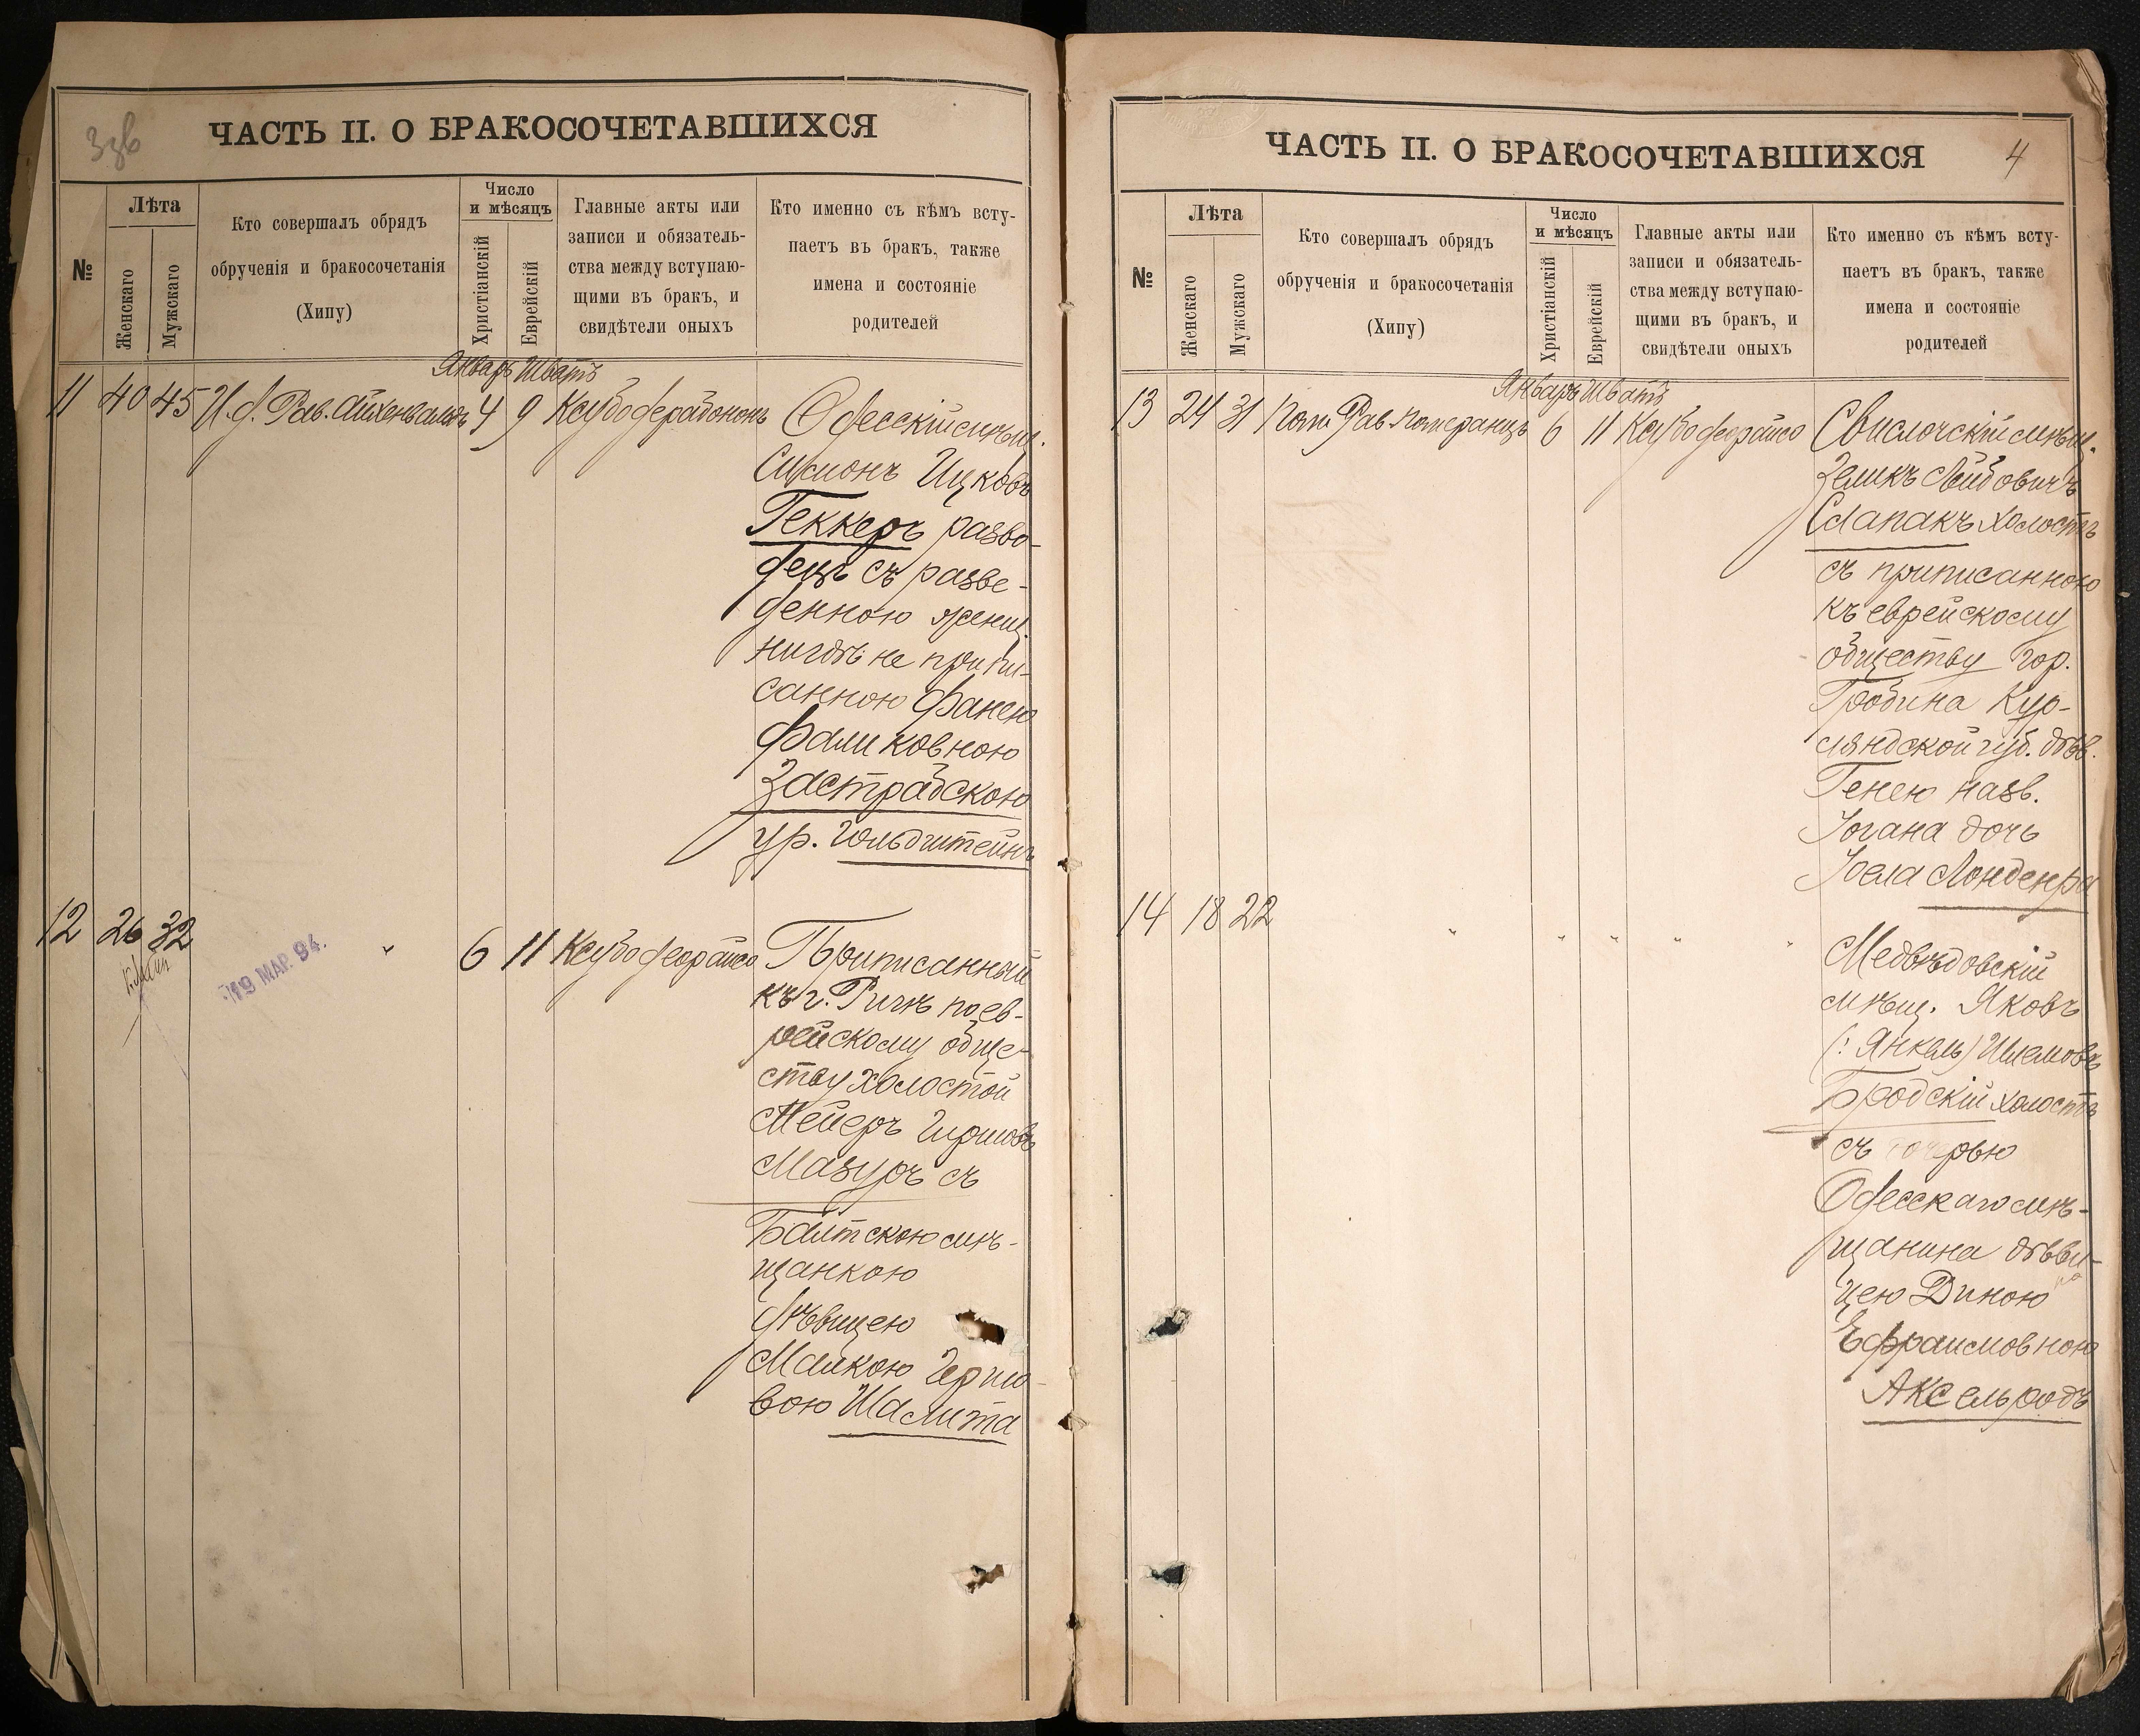 ЧАСТЬ II. О БРАКОСОЧЕТАВШИХСЯ
№
Лѣта
Женскаго
Мужскаго
Кто совершалъ обрядъ
обрученія и бракосочетанія
(Хипу)
Число
и мѣсяцъ
Христіанскій
Еврейскій
Главные акты или
записи и обязатель-
ства между вступаю-
щими въ бракъ, и
свидѣтели оныхъ
Кто именно съ кѣмъ всту-
паетъ въ бракъ, также
имена и состояніе
родителей
Январь Шватъ
11 40 45 И.д. Рав. Айхенвальдъ 4 9
Одесскій мѣщ.
Симонъ Ицковъ
Геккеръ разво-
децъ съ разве-
денною женщ.
нигдѣ не припи-
санною Фанею
Фаликовною
Застрабскою
ур. Гольдштейнъ
12 26 32 " 6 11
19 МАР. 94.
Приписанный
къ г. Ригѣ по ев-
рейскому обще-
ству холостой
Мейеръ Гиршовъ
Мазуръ съ
Балтскою мѣ-
щанкою
дѣвицею
Малкою Герш-
вою Шалита
ЧАСТЬ II. О БРАКОСОЧЕТАВШИХСЯ
4
№
Лѣта
Женскаго
Мужскаго
Кто совершалъ обрядъ
обрученія и бракосочетанія
(Хипу)
Число
и мѣсяцъ
Христіанскій
Еврейскій
Главные акты или
записи и обязатель-
ства между вступаю-
щими въ бракъ, и
свидѣтели оныхъ
Кто именно съ кѣмъ всту-
паетъ въ бракъ, также
имена и состояніе
родителей
Январь Шватъ
13 24 31 Пом. Рав. Померанцъ 6 11
Свислочскій мѣщ.
Зеликъ Лейбовичъ
Слапакъ холостъ
съ приписанною
къ еврейскому
обществу гор.
Гробина Кур-
ляндской губ. дѣв.
Генею назв.
Іогана дочь
Іоела Лонденра
14 18 22 " " " " "
Медвѣдовскій
мѣщ. Яковъ
(: Янкель) Шлемовъ
Бродскій холостъ
съ дочерью
Одесскаго мѣ-
щанина дѣви-
цею Диною
Ефраимовною
Аксельродъ